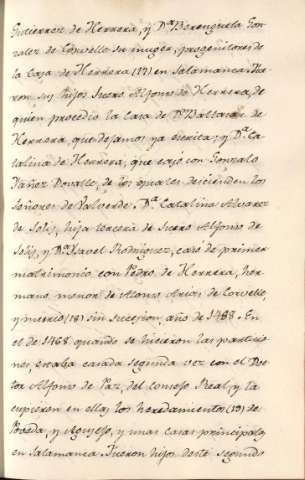 Gutierrez de Herrera, y D.ª Berenguela Gon
zalez de Corvelle su muger, progenitores de
la Casa de Herrera (17) en Salamanca. Fue
ron sus hijos Suero Alfonso de Herrera, de
quien procedio la Casa de D.n Baltasar de
Herrera, que dejamos ya escrita; y D.ª Ca
talina de Herrera, que casó con Gonzalo
Yañez Dovalle, de los quales descienden los
Señores de Valverde. D.ª Catalina Alvarez
de Solis, hija tercera de Suero Alfonso de
Solis, y D.ª Ysavel Rodriguez, casó de primer
matrimonio con Pedro de Herrera, her
mano menor de Alonso Arias de Corvelle,
y murio (18) sin sucesion, año de 1488. En
el de 1468 quando se hicieron las particio
nes, estaba casada segunda vez con el Doc
tor Alfonso de Paz, del consejo Real, y la
cupieron en ellas los heredamientos (19) de
Poveda, y Agusejo, y unas casas principales
en Salamanca. Fueron hijos deste segundo